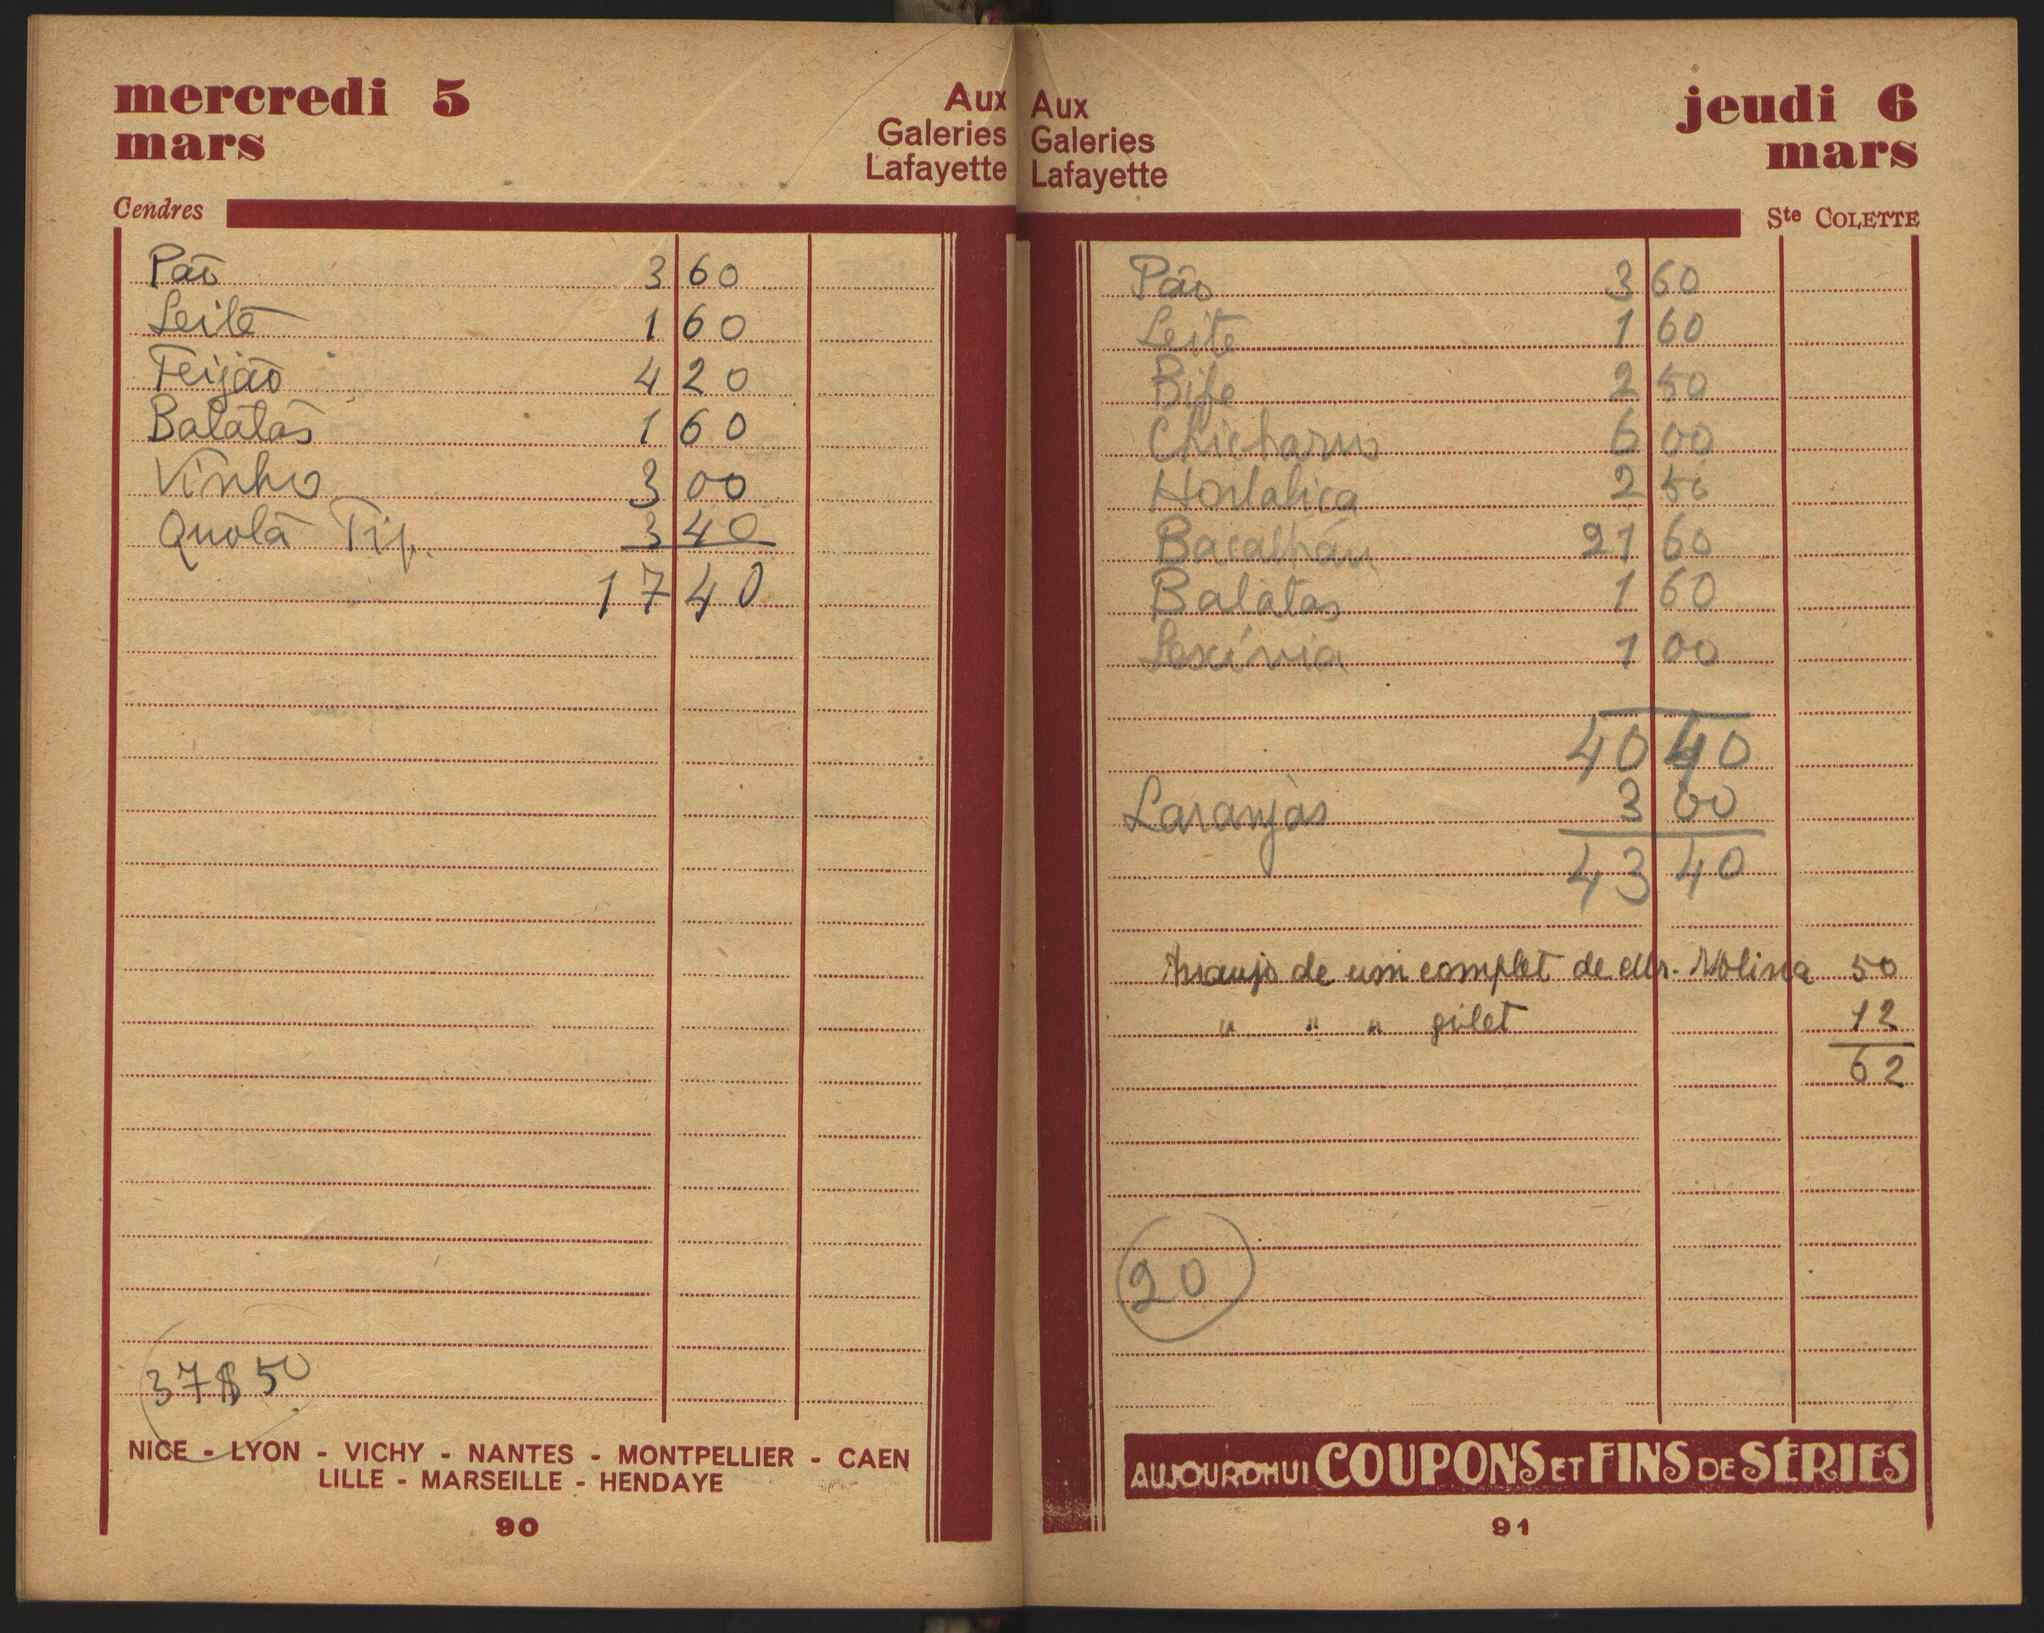 mercredi 5
mars
Aux
Galeries
Lafayette
Cendres
Pão 3 60
Leite 1 60
Feijão 4 20
Batatas 1 60
Vinho 3 00
Quota Tip. 3 40
17 40
37$50
NICE - LYON - VICHY - NANTES - MONTPELLIER - CAEN
LILLE - MARSEILLE - HENDAYE
90
Aux
Galeries
Lafayette
jeudi 6
mars
Ste COLETTE
Pão 3 60
Leite 1 60
Bife 2 50
Chicharro 6 00
Hortaliça 2 50
Bacalhau 21 60
Batatas 1 60
Lexívia 1 00
40 40
Laranjas 3 00
43 40
Aranjo de um complet de Mr. Molina 50
" " " gilet 12
62
20
AUJOURD'HUI COUPONS ET FINS DE SÉRIES
91